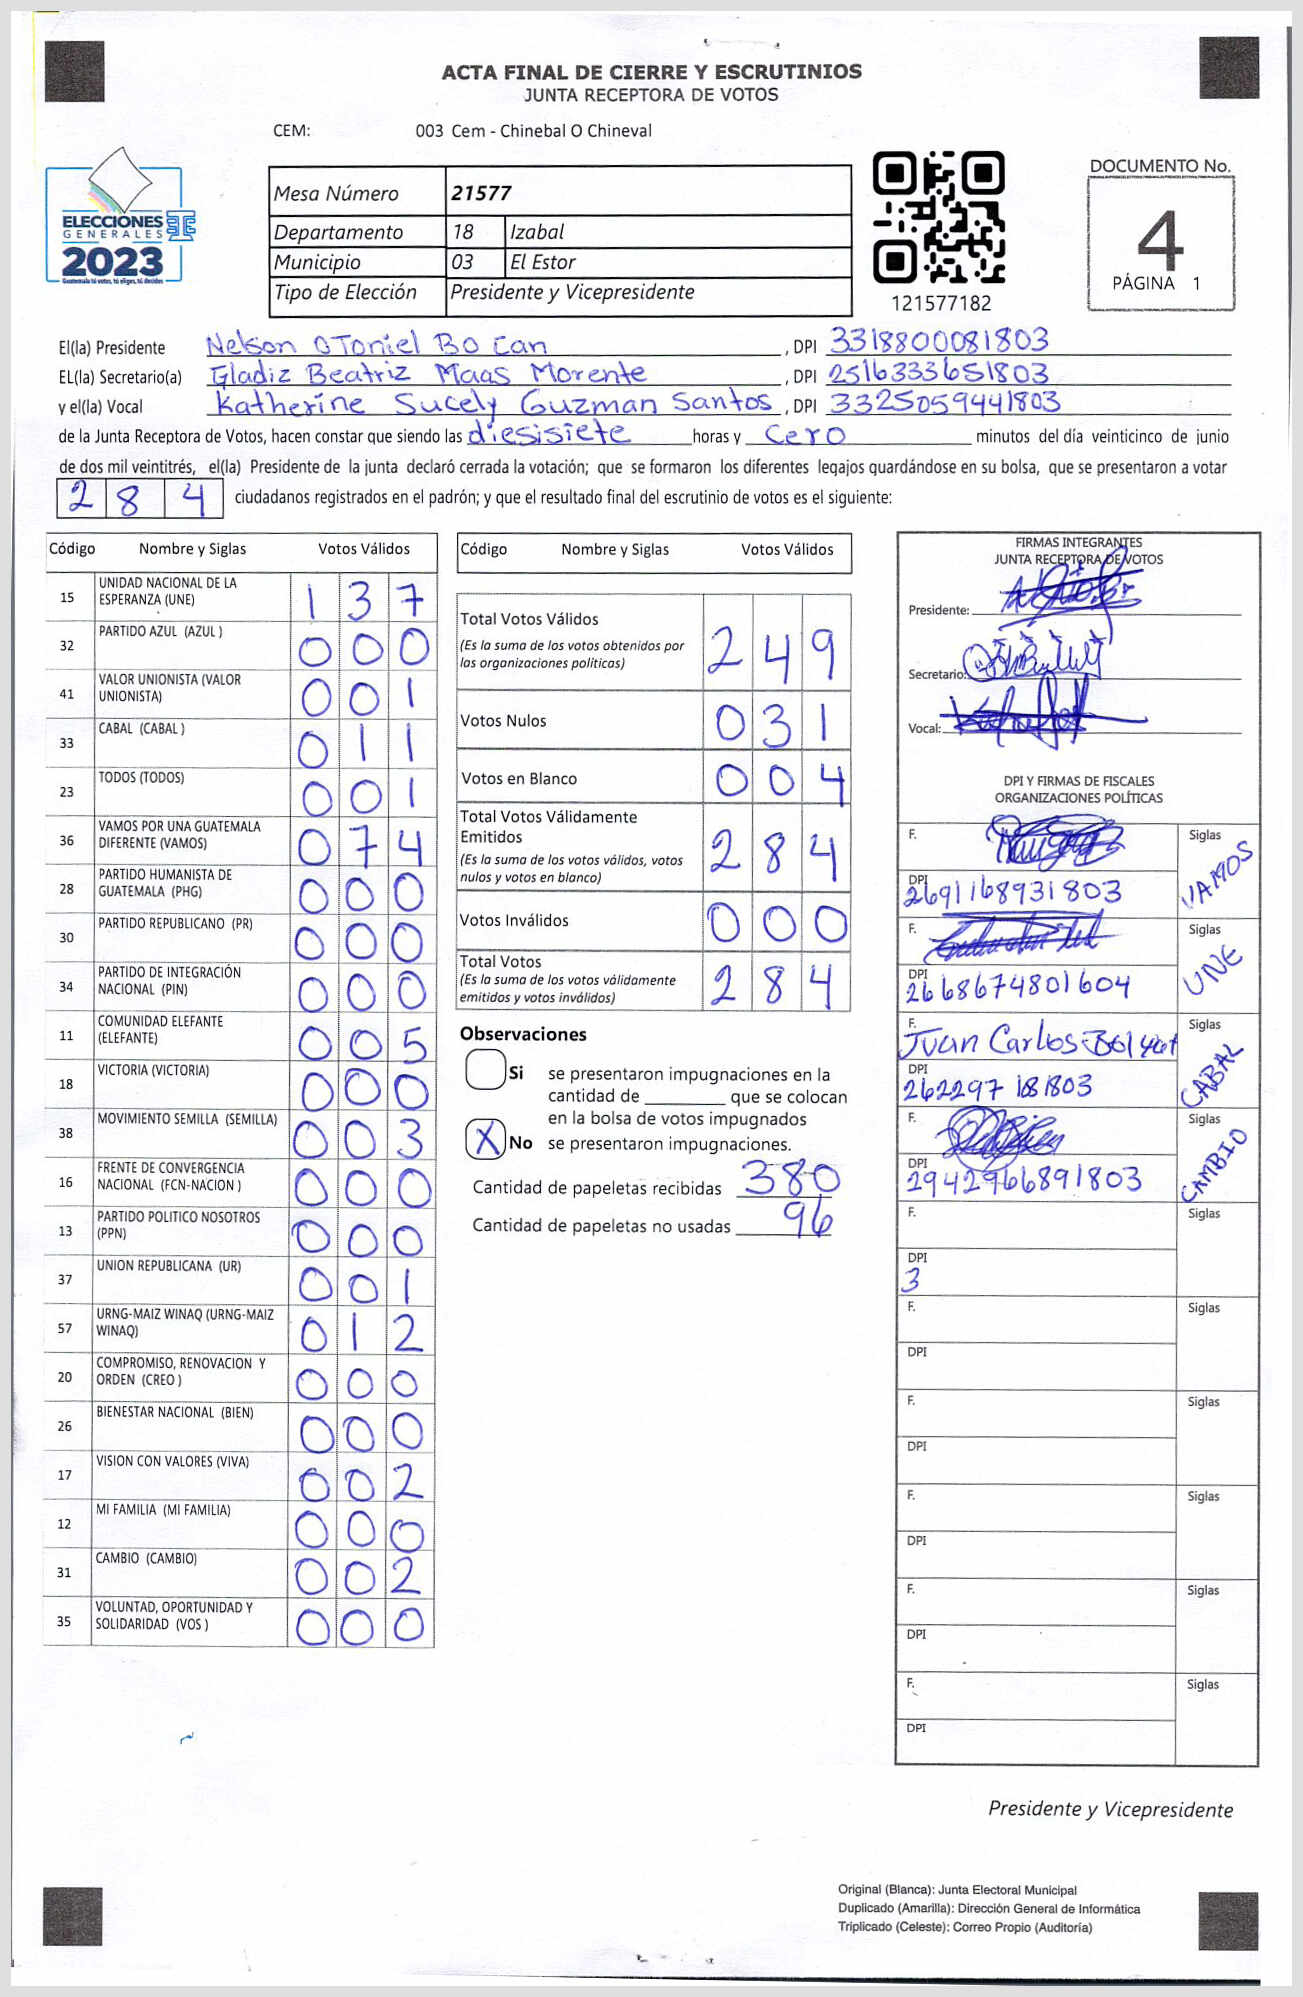 ACTA FINAL DE CIERRE Y ESCRUTINIOS
JUNTA RECEPTORA DE VOTOS
CEM: 003 Cem - Chinebal O Chineval
ELECCIONES
GENERALES
2023
Guatemala tú votas, tú eliges, tú decides
Mesa Número 21577
Departamento 18 Izabal
Municipio 03 El Estor
Tipo de Elección Presidente y Vicepresidente
121577182
DOCUMENTO No.
4
PÁGINA 1
El(la) Presidente Nelson OToniel Bo Can , DPI 3318800081803
EL(la) Secretario(a) Gladiz Beatriz Maas Morente , DPI 2516333651803
y el(la) Vocal Katherine Sucely Guzman Santos , DPI 3325059441803
de la Junta Receptora de Votos, hacen constar que siendo las diesisiete horas y cero minutos del día veinticinco de junio
de dos mil veintitrés, el(la) Presidente de la junta declaró cerrada la votación; que se formaron los diferentes legajos guardándose en su bolsa, que se presentaron a votar
2 8 4 ciudadanos registrados en el padrón; y que el resultado final del escrutinio de votos es el siguiente:
Código Nombre y Siglas Votos Válidos
15 UNIDAD NACIONAL DE LA ESPERANZA (UNE) 1 3 7
32 PARTIDO AZUL (AZUL ) 0 0 0
41 VALOR UNIONISTA (VALOR UNIONISTA) 0 0 1
33 CABAL (CABAL ) 0 1 1
23 TODOS (TODOS) 0 0 1
36 VAMOS POR UNA GUATEMALA DIFERENTE (VAMOS) 0 7 4
28 PARTIDO HUMANISTA DE GUATEMALA (PHG) 0 0 0
30 PARTIDO REPUBLICANO (PR) 0 0 0
34 PARTIDO DE INTEGRACIÓN NACIONAL (PIN) 0 0 0
11 COMUNIDAD ELEFANTE (ELEFANTE) 0 0 5
18 VICTORIA (VICTORIA) 0 0 0
38 MOVIMIENTO SEMILLA (SEMILLA) 0 0 3
16 FRENTE DE CONVERGENCIA NACIONAL (FCN-NACION ) 0 0 0
13 PARTIDO POLITICO NOSOTROS (PPN) 0 0 0
37 UNION REPUBLICANA (UR) 0 0 1
57 URNG-MAIZ WINAQ (URNG-MAIZ WINAQ) 0 1 2
20 COMPROMISO, RENOVACION Y ORDEN (CREO ) 0 0 0
26 BIENESTAR NACIONAL (BIEN) 0 0 0
17 VISION CON VALORES (VIVA) 0 0 2
12 MI FAMILIA (MI FAMILIA) 0 0 0
31 CAMBIO (CAMBIO) 0 0 2
35 VOLUNTAD, OPORTUNIDAD Y SOLIDARIDAD (VOS ) 0 0 0
Código Nombre y Siglas Votos Válidos
Total Votos Válidos 2 4 9
(Es la suma de los votos obtenidos por
las organizaciones políticas)
Votos Nulos 0 3 1
Votos en Blanco 0 0 4
Total Votos Válidamente
Emitidos 2 8 4
(Es la suma de los votos válidos, votos
nulos y votos en blanco)
Votos Inválidos 0 0 0
Total Votos 2 8 4
(Es la suma de los votos válidamente
emitidos y votos inválidos)
Observaciones
Si se presentaron impugnaciones en la
cantidad de ________ que se colocan
en la bolsa de votos impugnados
X No se presentaron impugnaciones.
Cantidad de papeletas recibidas 380
Cantidad de papeletas no usadas 96
FIRMAS INTEGRANTES
JUNTA RECEPTORA DE VOTOS
Presidente:
Secretario:
Vocal:
DPI Y FIRMAS DE FISCALES
ORGANIZACIONES POLÍTICAS
F. Siglas VAMOS
DPI 2691168931803
F. Siglas UNE
DPI 2668674801604
F. Juan Carlos Siglas CABAL
DPI 262297 181803
F. Siglas CAMBIO
DPI 2942966891803
F. Siglas
DPI 3
F. Siglas
DPI
F. Siglas
DPI
F. Siglas
DPI
F. Siglas
DPI
F. Siglas
DPI
Presidente y Vicepresidente
Original (Blanca): Junta Electoral Municipal
Duplicado (Amarilla): Dirección General de Informática
Triplicado (Celeste): Correo Propio (Auditoría)